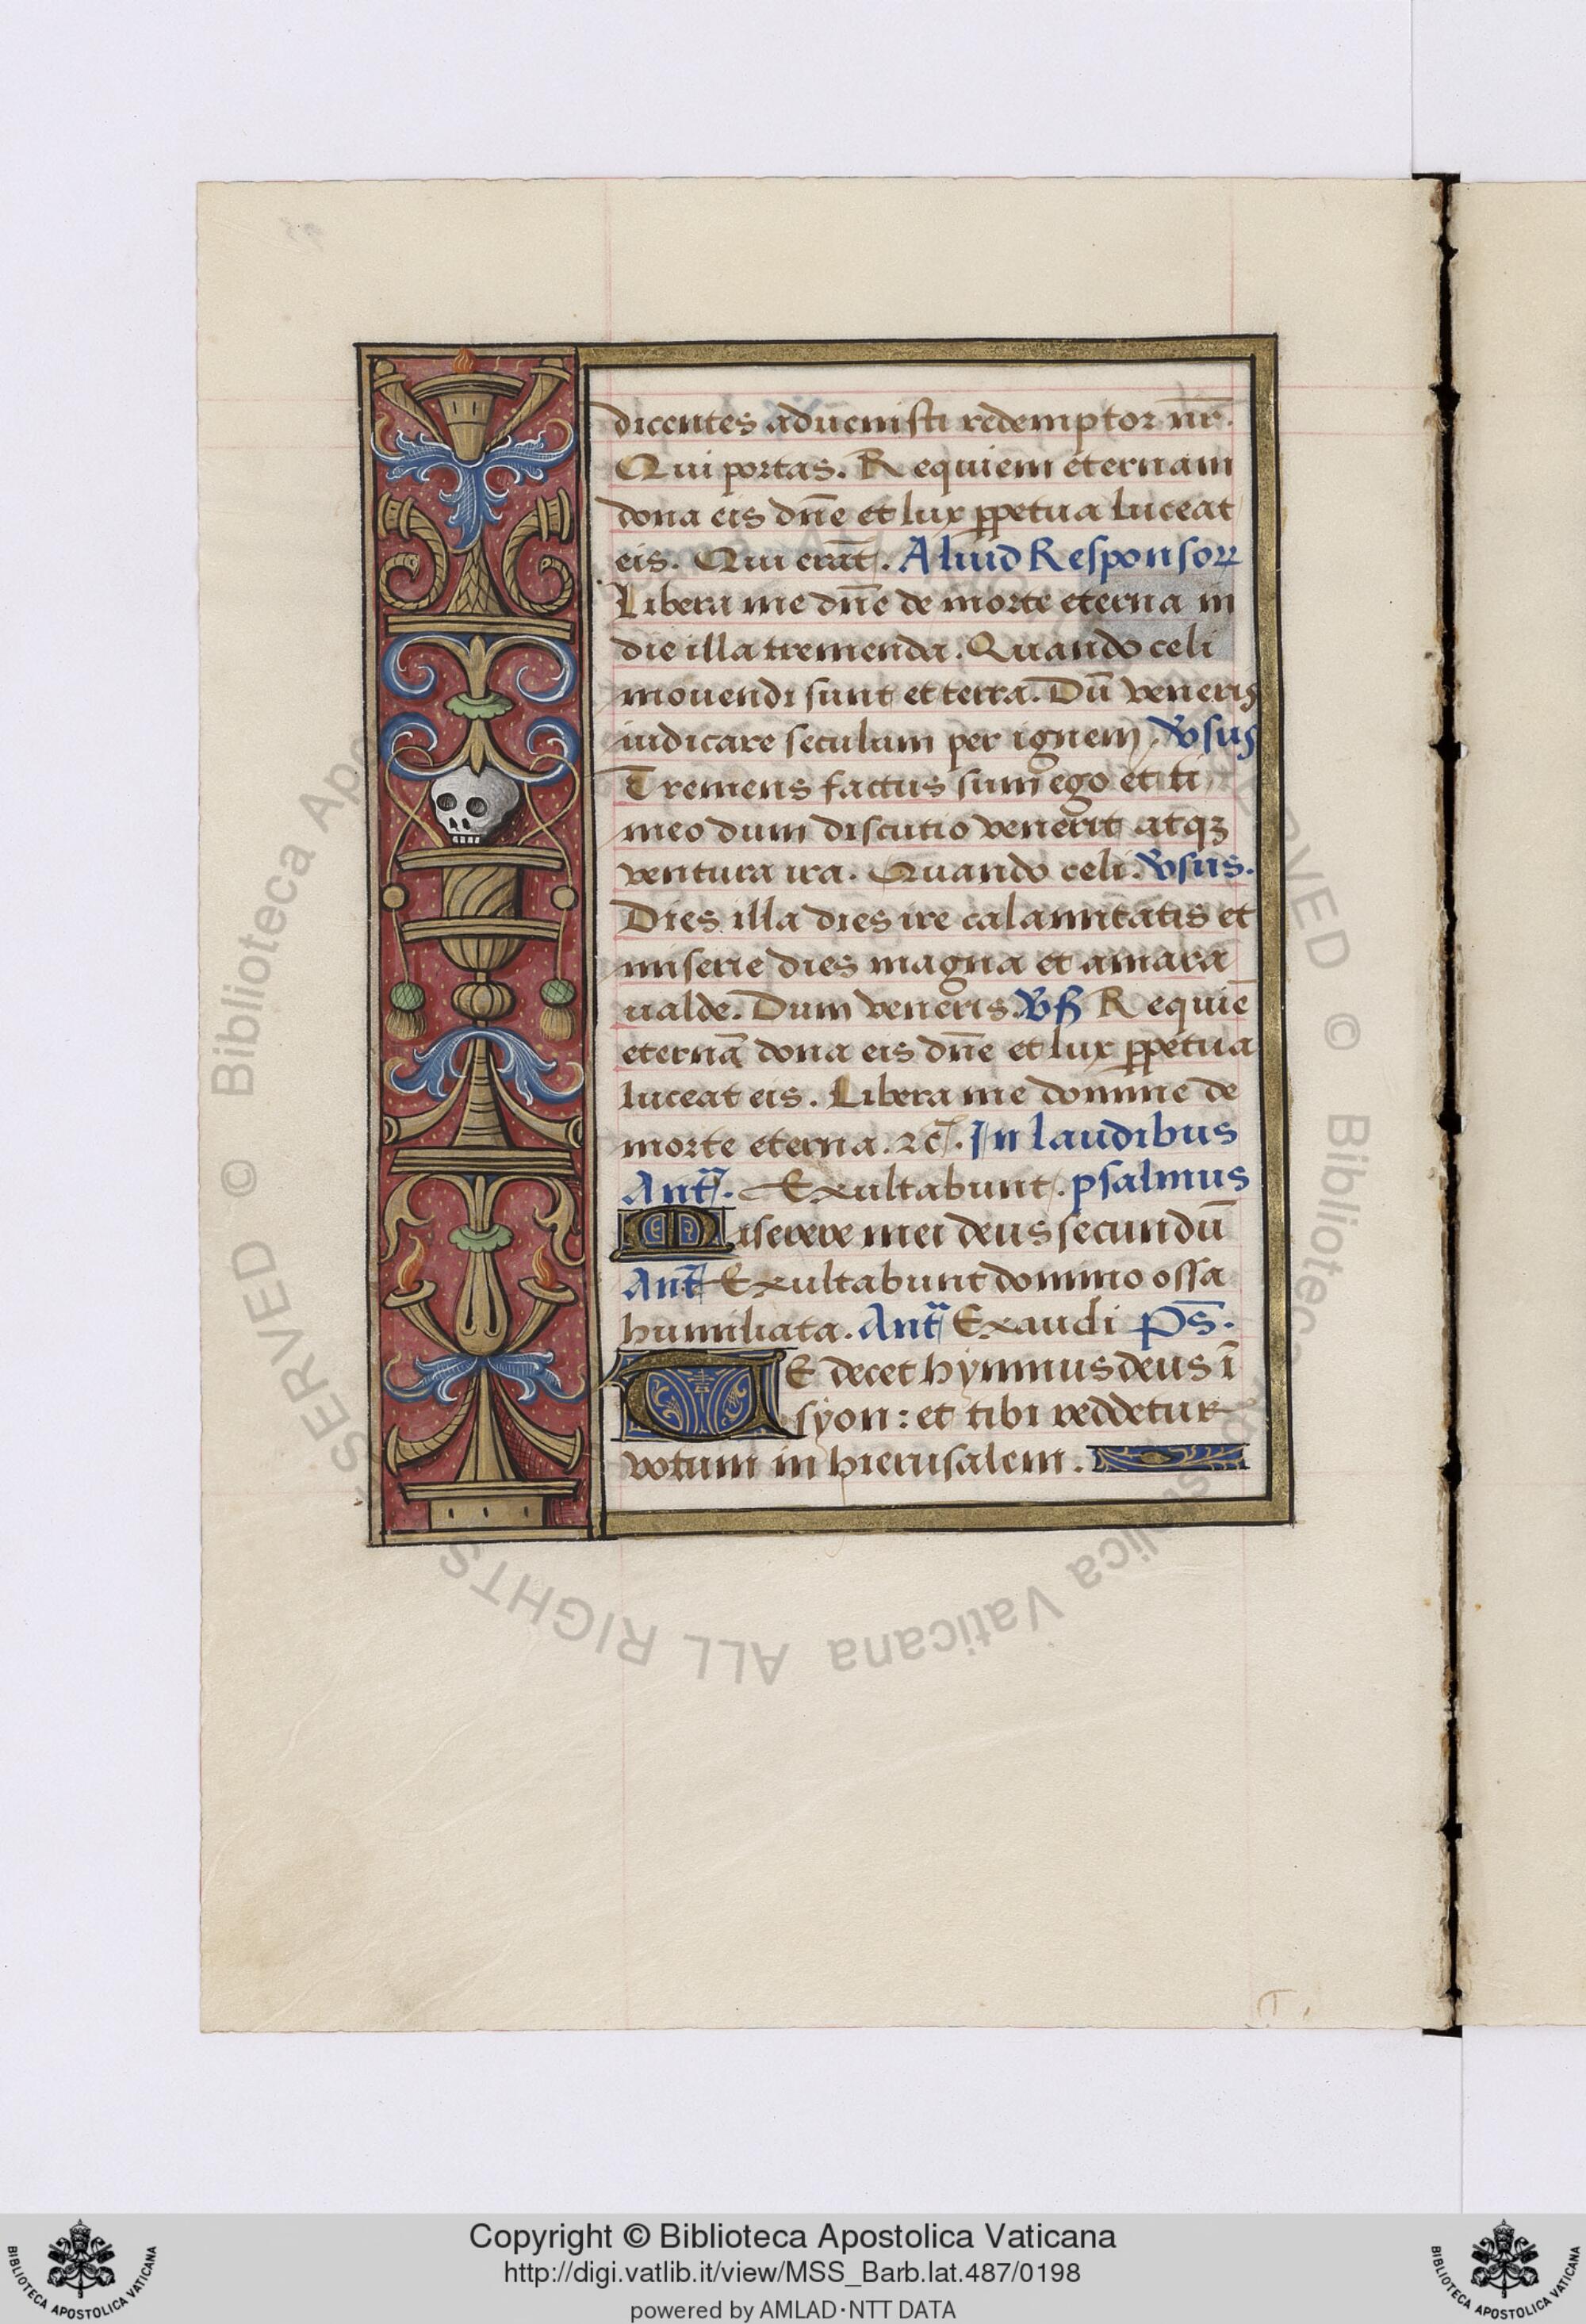 dicentes aduenisti redemptor nr̄.
Qui portas. Requiem eternam
dona eis dn̄e et lux ꝑpetua luceat
eis. Qui erāt. Aliud Responsoꝝ
Libera me dn̄e de morte eterna in
die illa tremenda. Quando celi
mouendi sunt et terra. Dū veneris
iudicare seculum per ignem. v̄sus
Tremens factus sum ego et ti
meo dum discutio venerit atqꝫ
ventura ira. Quando celi. v̄sus.
Dies illa dies ire calamitatis et
miserie dies magna et amara
ualde. Dum veneris. v̄ß Requiē
eternā dona eis dn̄e et lux ꝑpetua
luceat eis. Libera me domine de
morte eterna. ⁊c̄. In laudibus
Antᵃ. Exultabunt. psalmus
Miserere mei deus secundū
Ant̄ Exultabunt domino ossa
humiliata. Antᵃ Exaudi Ps̄.
TE decet hymnus deus ī
syon: et tibi reddetur
votum in hierusalem.
© Biblioteca Apostolica Vaticana ALL RIGHTS RESERVED
Copyright © Biblioteca Apostolica Vaticana
http://digi.vatlib.it/view/MSS_Barb.lat.487/0198
powered by AMLAD·NTT DATA
BIBLIOTECA APOSTOLICA VATICANA
BIBLIOTECA APOSTOLICA VATICANA